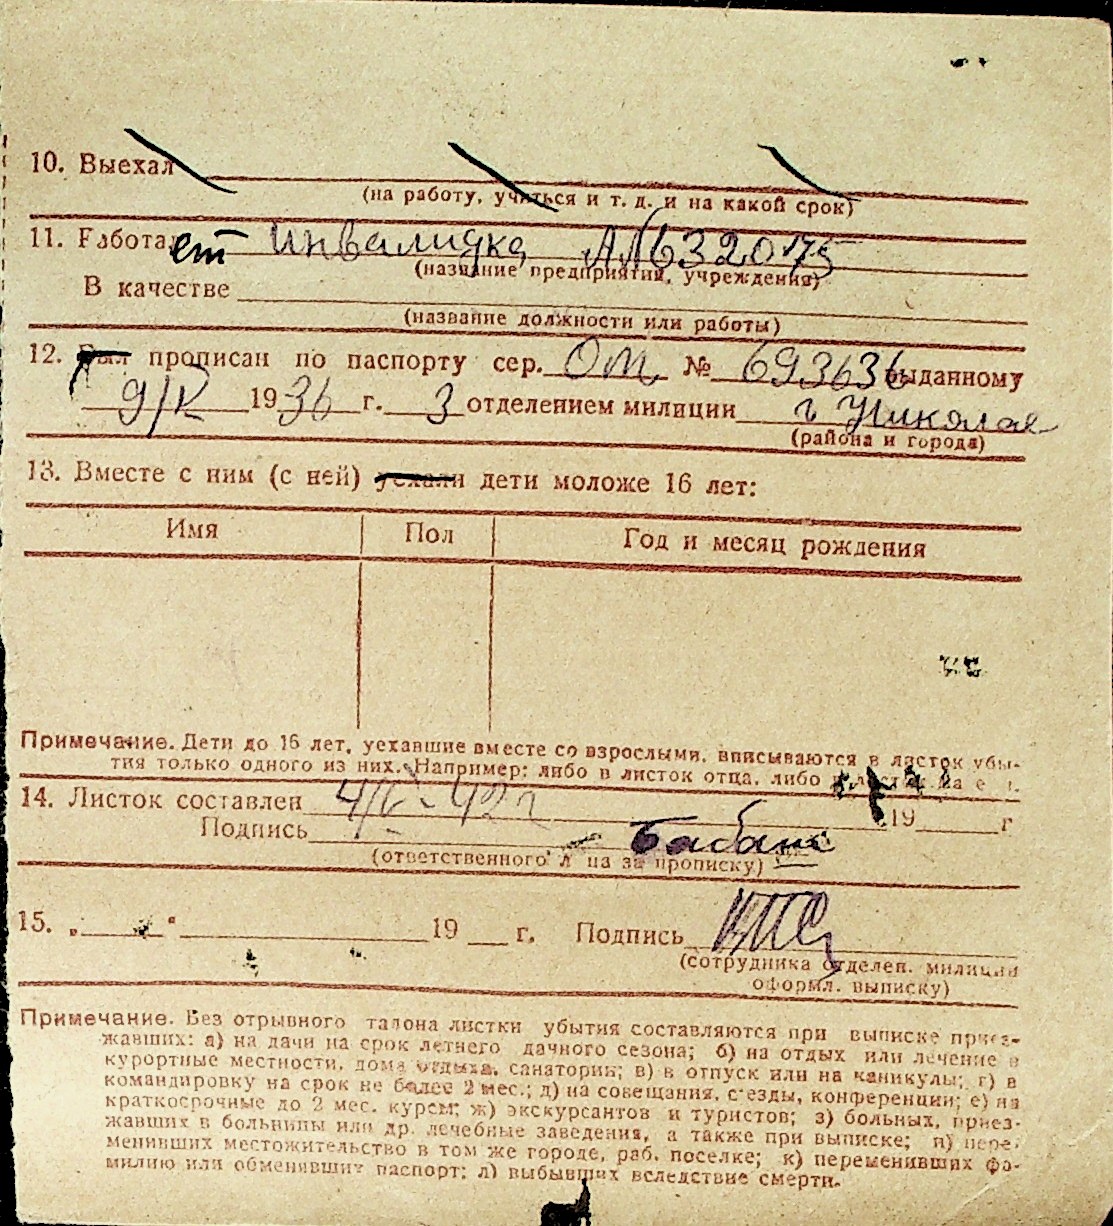 10. Выехал
(на работу, учиться и т. д. и на какой срок)
11. Работает инвалидка АЛ 632075
(название предприятия, учреждения)
В качестве
(название должности или работы)
12. Был прописан по паспорту сер. ОМ № 693636 выданному
9/V 1936 г. 3 отделением милиции г Николае
(района и города)
13. Вместе с ним (с ней) уехали дети моложе 16 лет:
Имя Пол Год и месяц рождения
Примечание. Дети до 16 лет, уехавшие вместе со взрослыми, вписываются в листок убы-
тия только одного из них. Например: либо в листок отца, либо
14. Листок составлен 4/V-42г 19 г
Подпись
(ответственного лица за прописку)
15. „ " 19 г. Подпись
(сотрудника отделен. милиции
оформл. выписку)
Примечание. Без отрывного талона листки убытия составляются при выписке приез-
жавших: а) на дачи на срок летнего дачного сезона; б) на отдых или лечение в
курортные местности, дома отдыха, санатории; в) в отпуск или на каникулы; г) в
командировку на срок не более 2 мес.; д) на совещания, съезды, конференции; е) на
краткосрочные до 2 мес. курсы; ж) экскурсантов и туристов; з) больных, приез-
жавших в больницы или др. лечебные заведения, а также при выписке; и) пере-
менивших местожительство в том же городе, раб. поселке; к) переменивших фа-
милию или обменявших паспорт; л) выбывших вследствие смерти.